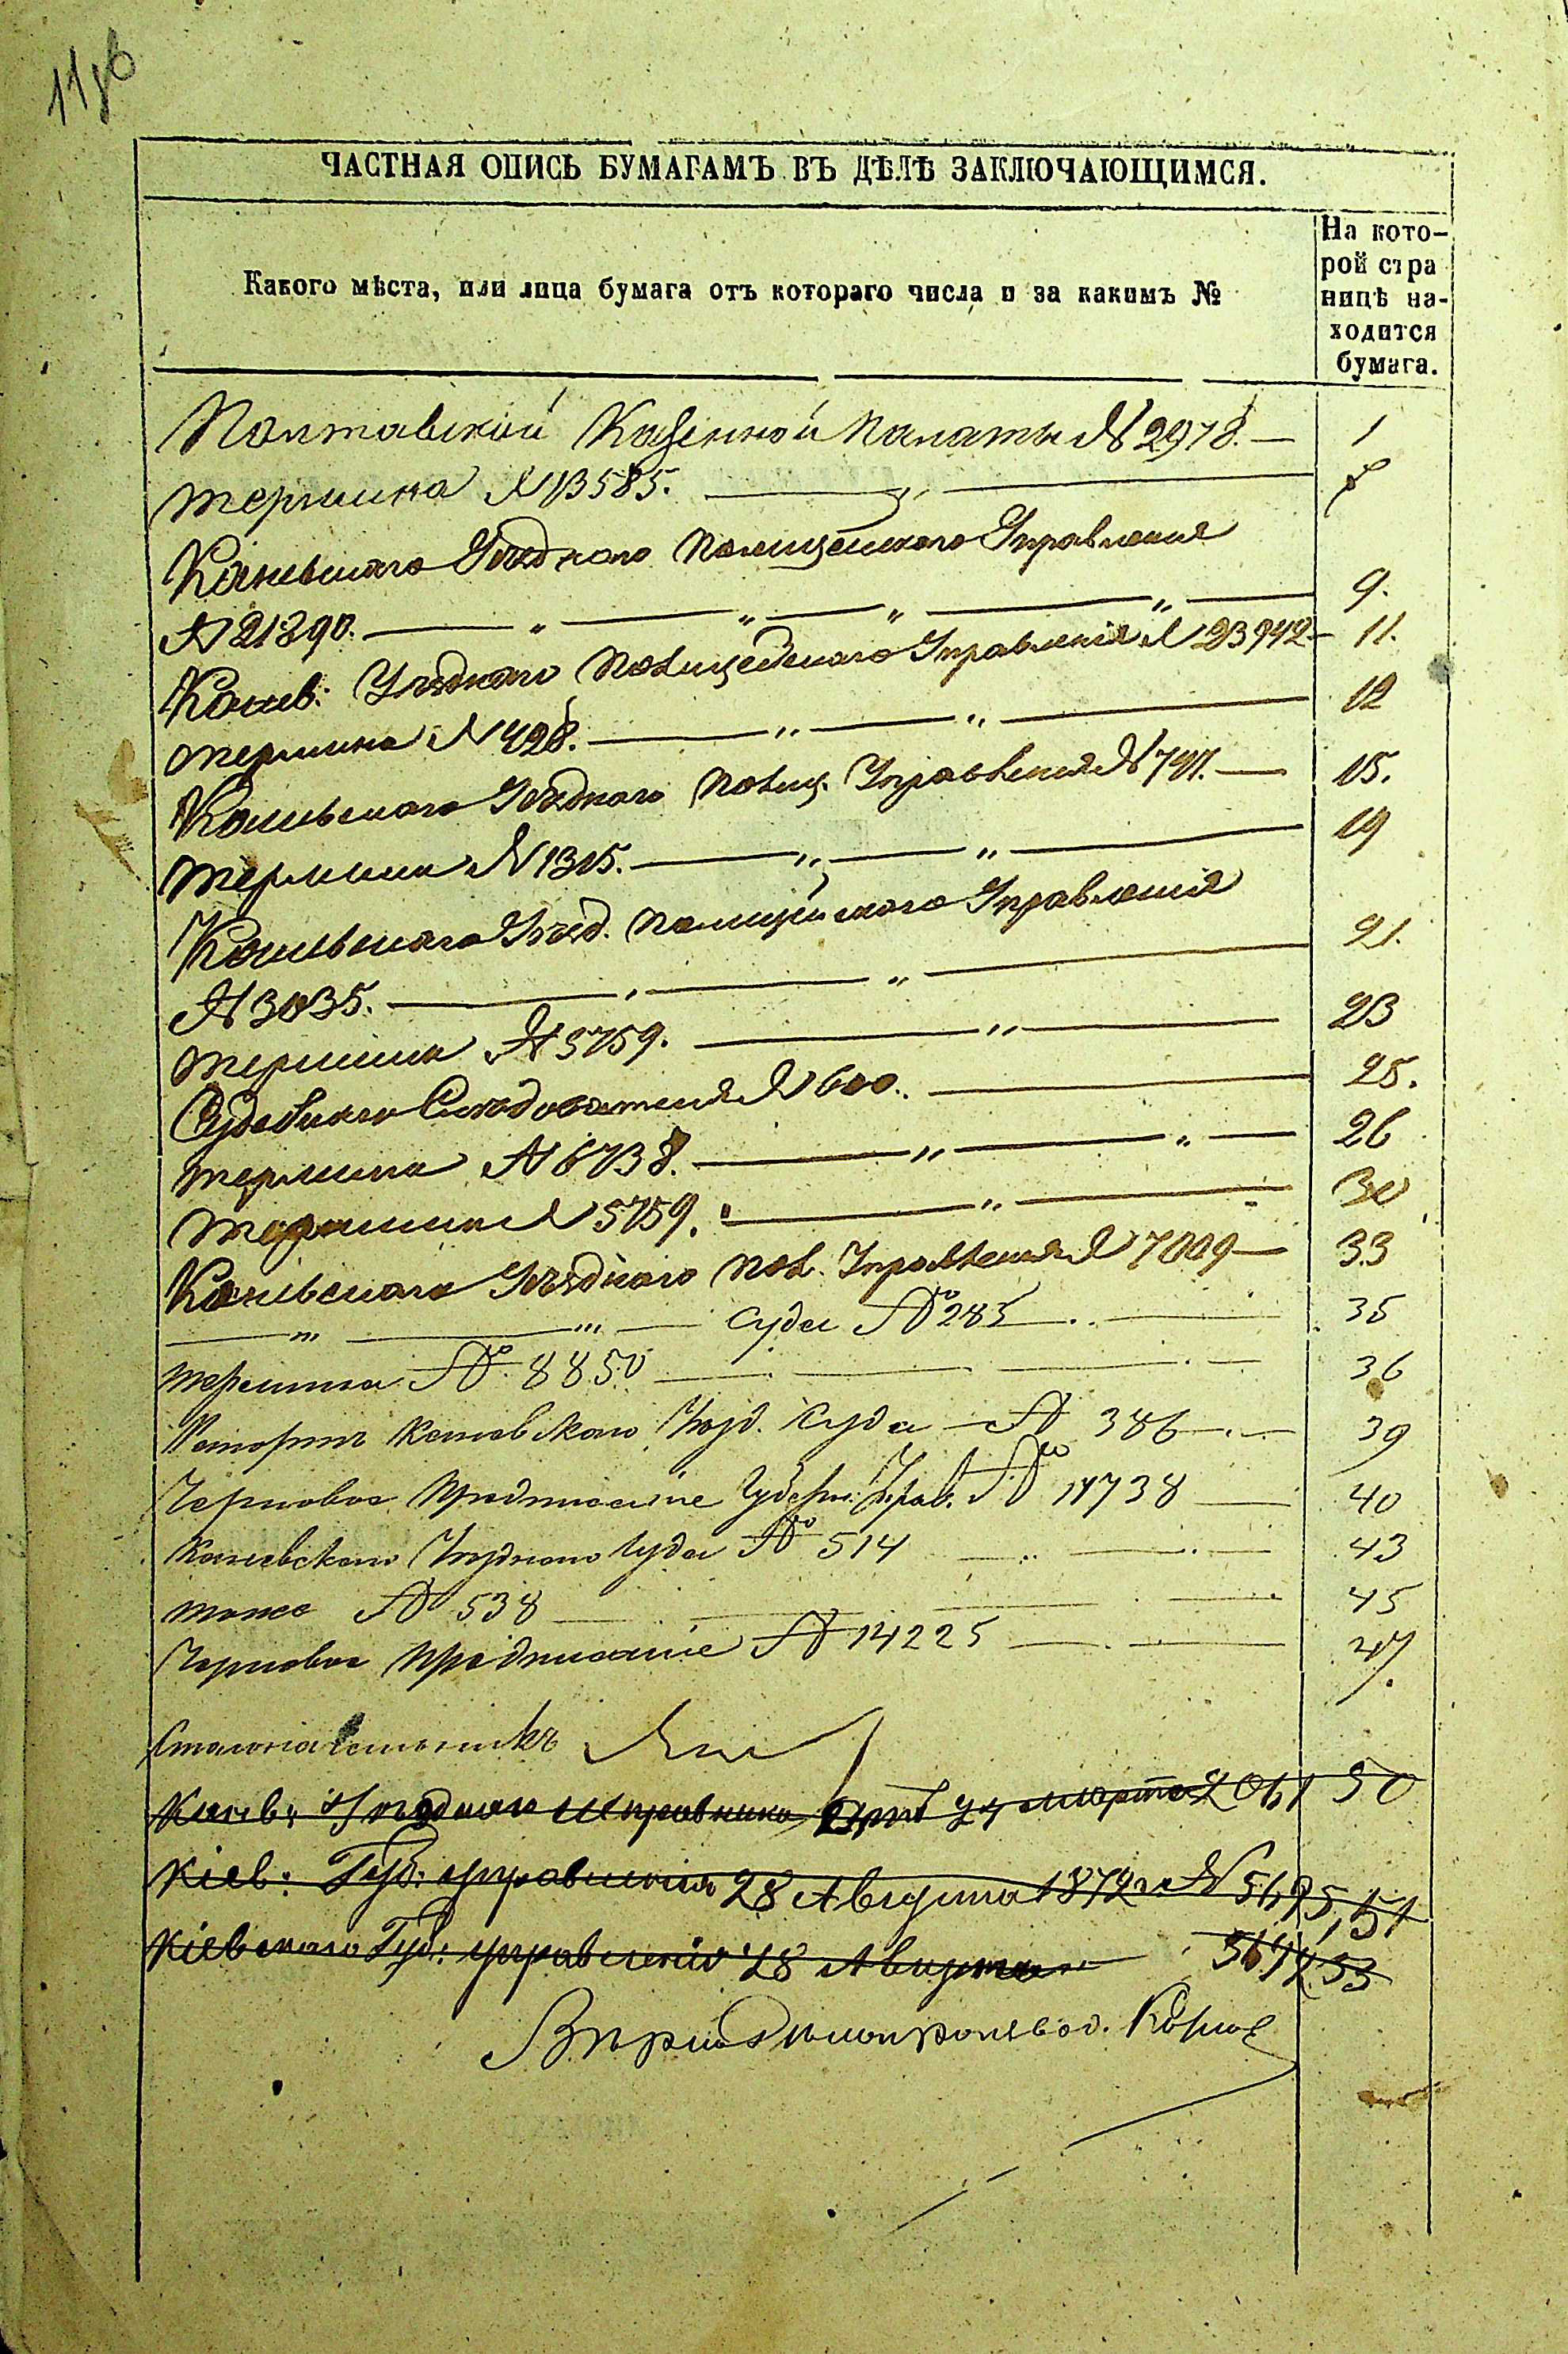 ЧАСТНАЯ ОПИСЬ БУМАГАМЪ ВЪ ДѢЛѢ ЗАКЛЮЧАЮЩИМСЯ.
Какого мѣста, или лица бумага отъ котораго числа и за какимъ №
На кото-
рой стра
ницѣ на-
ходится
бумага.
Полтавской Казенной Палаты № 2978. — 1
№ 13585.
Каневскаго Уѣзднаго Полицейскаго Управленія
№ 21390. — 9.
Канев: Уѣзднаго Полицейскаго Управленія № 23942 — 11.
№ 428. — 12
Каневскаго Уѣзднаго Полиц. Управленія № 747. — 15.
№ 1315. — 19
Каневскаго Уѣзд. Полицейскаго Управленія
№ 3035. — 21.
№ 3759. — 23
Судебнаго Слѣдователя № 600. — 25.
№ 6738. — 26
№ 5759. — 30
Каневскаго Уѣзднаго Пол. Управленія № 7009 — 33
Суда № 285 — 35
№ 8850 — 36
Рапортъ Каневскаго Уѣзд. Суда № 386 — 39
Черновое предписаніе Губерн. Прав. № 11738 — 40
Каневскаго Уѣзднаго Суда № 514 — 43
тоже № 538 — 45
Черновое предписаніе № 14225 — 47.
Столоначальникъ
Канев: Уѣзднаго Исправника 24 марта 2061 50
Кіев: Губ: управленія 28 Августа 1872 г № 5695, 51
Кіевскаго Губ: управленія 28 Августа 5694 53